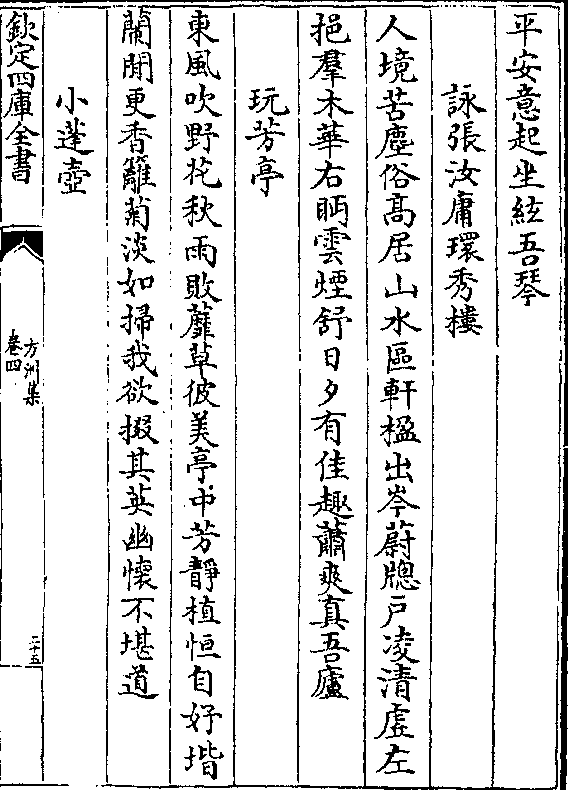 平安意起坐絃吾琴
詠張汝庸環秀樓
人境苦塵俗高居山水區軒楹出岑蔚牕戸凌清虚左
挹羣木華右眄雲煙舒日夕有佳趣蕭爽真吾廬
玩芳亭
東風吹野花秋雨敗蘼草彼美亭中芳靜植恒自好堦
蘭閒更香籬菊淡如掃我欲掇其英幽懷不堪道
小蓬壺
欽定四庫全書
方洲集
卷四
二十五